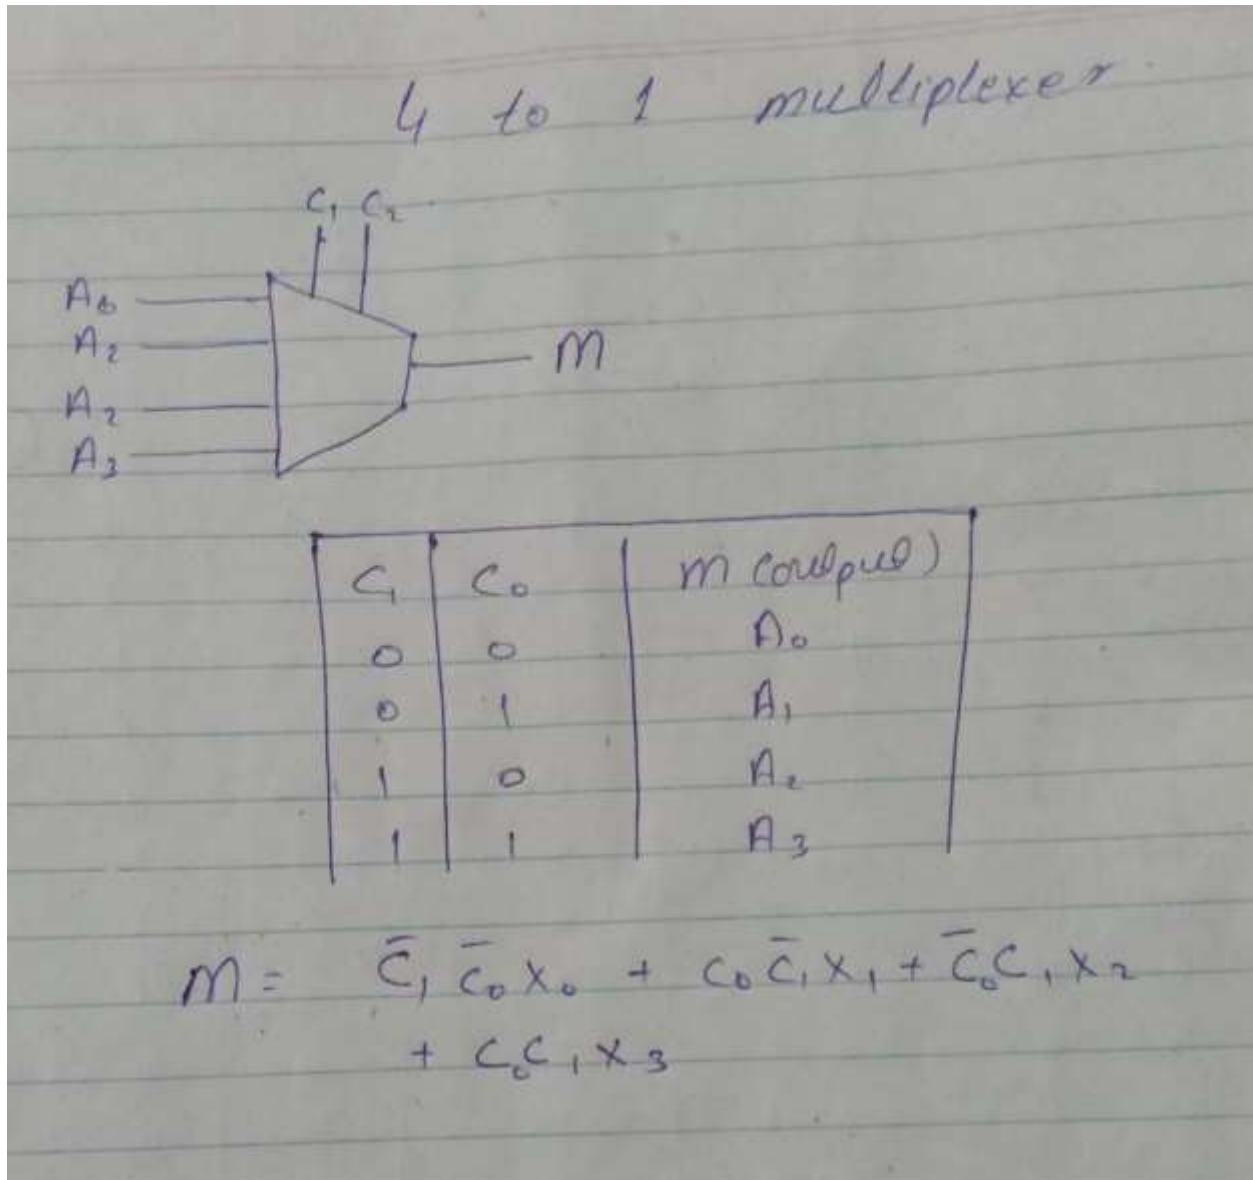 4 to 1 multiplexer
C₁ C₂
A₀
A₂
M
A₂
A₃
C₁ C₀ m (output)
0 0 A₀
0 1 A₁
1 0 A₂
1 1 A₃
M = C̄₁ C̄₀ X₀ + C₀ C̄₁ X₁ + C̄₀ C₁ X₂
+ C₀ C₁ X₃